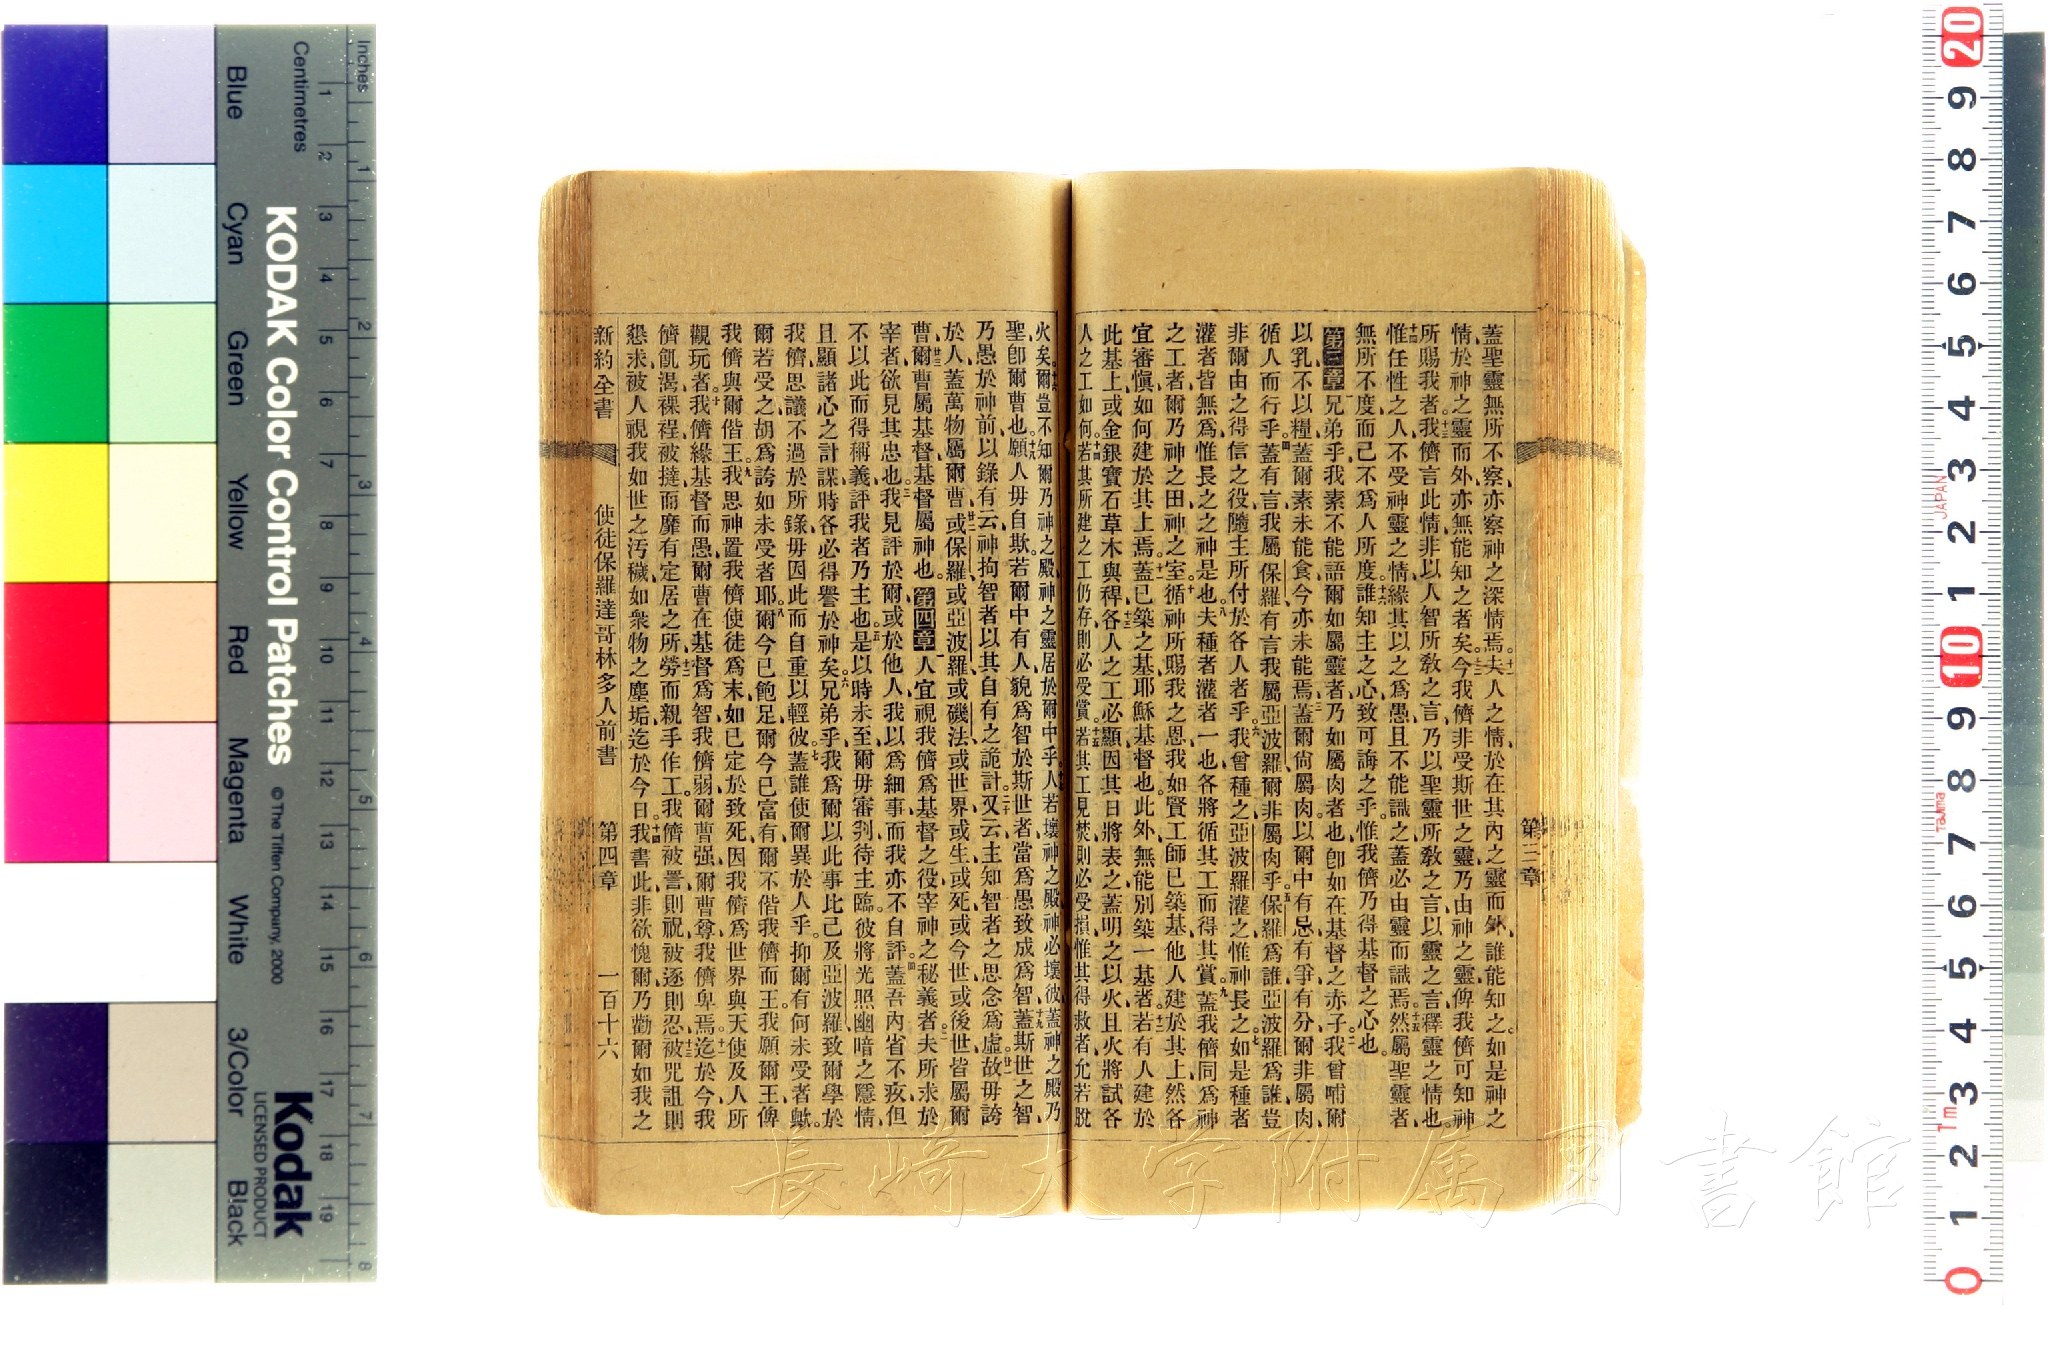 蓋聖靈無所不察亦察神之深情焉夫人之情於在其內之靈而外誰能知之如是神之
情於神之靈而外亦無能知之者矣今我儕非受斯世之靈乃由神之靈俾我儕可知神
所賜我者我儕言此情非以人智所敎之言乃以聖靈所敎之言以靈之言釋靈之情也
惟任性之人不受神靈之情緣其以之爲愚且不能識之蓋必由靈而識焉然屬聖靈者
無所不度而己不爲人所度誰知主之心致可誨之乎惟我儕乃得基督之心也
第三章兄弟乎我素不能語爾如屬靈者乃如屬肉者也卽如在基督之赤子我曾哺爾
以乳不以糧蓋爾素未能食今亦未能焉蓋爾尙屬肉以爾中有忌有爭有分爾非屬肉
循人而行乎蓋有言我屬保羅有言我屬亞波羅爾非屬肉乎保羅爲誰亞波羅爲誰豈
非爾由之得信之役隨主所付於各人者乎我曾種之亞波羅灌之惟神長之如是種者
灌者皆無爲惟長之之神是也夫種者灌者一也各將循其工而得其賞蓋我儕同爲神
之工者爾乃神之田神之室循神所賜我之恩我如賢工師已築基他人建於其上然各
宜審愼如何建於其上焉蓋已築之基耶穌基督也此外無能別築一基者若有人建於
此基上或金銀寶石草木與稈各人之工必顯因其日將表之蓋明之以火且火將試各
人之工如何若其所建之工仍存則必受賞若其工見焚則必受損惟其得救者允若脫
火矣爾豈不知爾乃神之殿神之靈居於爾中乎人若壞神之殿神必壞彼蓋神之殿乃
聖卽爾曹也願人毋自欺若爾中有人貌爲智於斯世者當爲愚致成爲智蓋斯世之智
乃愚於神前以錄有云神拘智者以其自有之詭計又云主知智者之思念爲虛故毋誇
於人蓋萬物屬爾曹或保羅或亞波羅或磯法或世界或生或死或今世或後世皆屬爾
曹爾曹屬基督基督屬神也第四章人宜視我儕爲基督之役宰神之秘義者夫所求於
宰者欲見其忠也我見評於爾或於他人我以爲細事而我亦不自評蓋吾內省不疚但
不以此而得稱義評我者乃主也是以時未至爾毋審判待主臨彼將光照幽暗之隱情
且顯諸心之計謀時各必得譽於神矣兄弟乎我爲爾以此事比己及亞波羅致爾學於
我儕思議不過於所錄毋因此而自重以輕彼蓋誰使爾異於人乎抑爾有何未受者歟
爾若受之胡爲誇如未受者耶爾今已飽足爾今已富有爾不偕我儕而王我願爾王俾
我儕與爾偕王我思神置我儕使徒爲末如已定於致死因我儕爲世界與天使及人所
觀玩者我儕緣基督而愚爾曹在基督爲智我儕弱爾曹强爾曹尊我儕卑焉迄於今我
儕飢渴裸裎被撻而靡有定居之所勞而親手作工我儕被詈則祝被逐則忍被咒詛則
懇求被人視我如世之汚穢如衆物之塵垢迄於今日我書此非欲愧爾乃勸爾如我之
新約全書 使徒保羅達哥林多人前書 第四章 一百十六
第三章
長崎大学附属図書館
Inches
Centimetres
1 2 3 4 5 6 7 8
1 2 3 4 5 6 7 8 9 10 11 12 13 14 15 16 17 18 19
Blue
Cyan
Green
Yellow
Red
Magenta
White
3/Color
Black
KODAK Color Control Patches
© The Tiffen Company, 2000
Kodak
LICENSED PRODUCT
20 9 8 7 6 5 4 3 2 1 10 9 8 7 6 5 4 3 2 1 0
JAPAN
Tajima
Tm